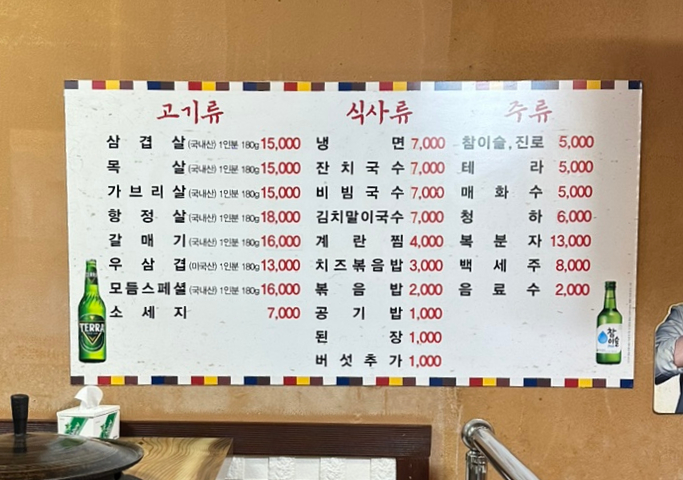 고기류
삼겹살 (국내산) 1인분 180g 15,000
목살 (국내산) 1인분 180g 15,000
가브리살 (국내산) 1인분 180g 15,000
항정살 (국내산) 1인분 180g 18,000
갈매기 (국내산) 1인분 180g 16,000
우삼겹 (미국산) 1인분 180g 13,000
모듬스페셜 (국내산) 1인분 180g 16,000
소세지 7,000
식사류
냉면 7,000
잔치국수 7,000
비빔국수 7,000
김치말이국수 7,000
계란찜 4,000
치즈볶음밥 3,000
볶음밥 2,000
공기밥 1,000
된장 1,000
버섯추가 1,000
주류
참이슬,진로 5,000
테라 5,000
매화수 5,000
청하 6,000
복분자 13,000
백세주 8,000
음료수 2,000
TERRA
참이슬